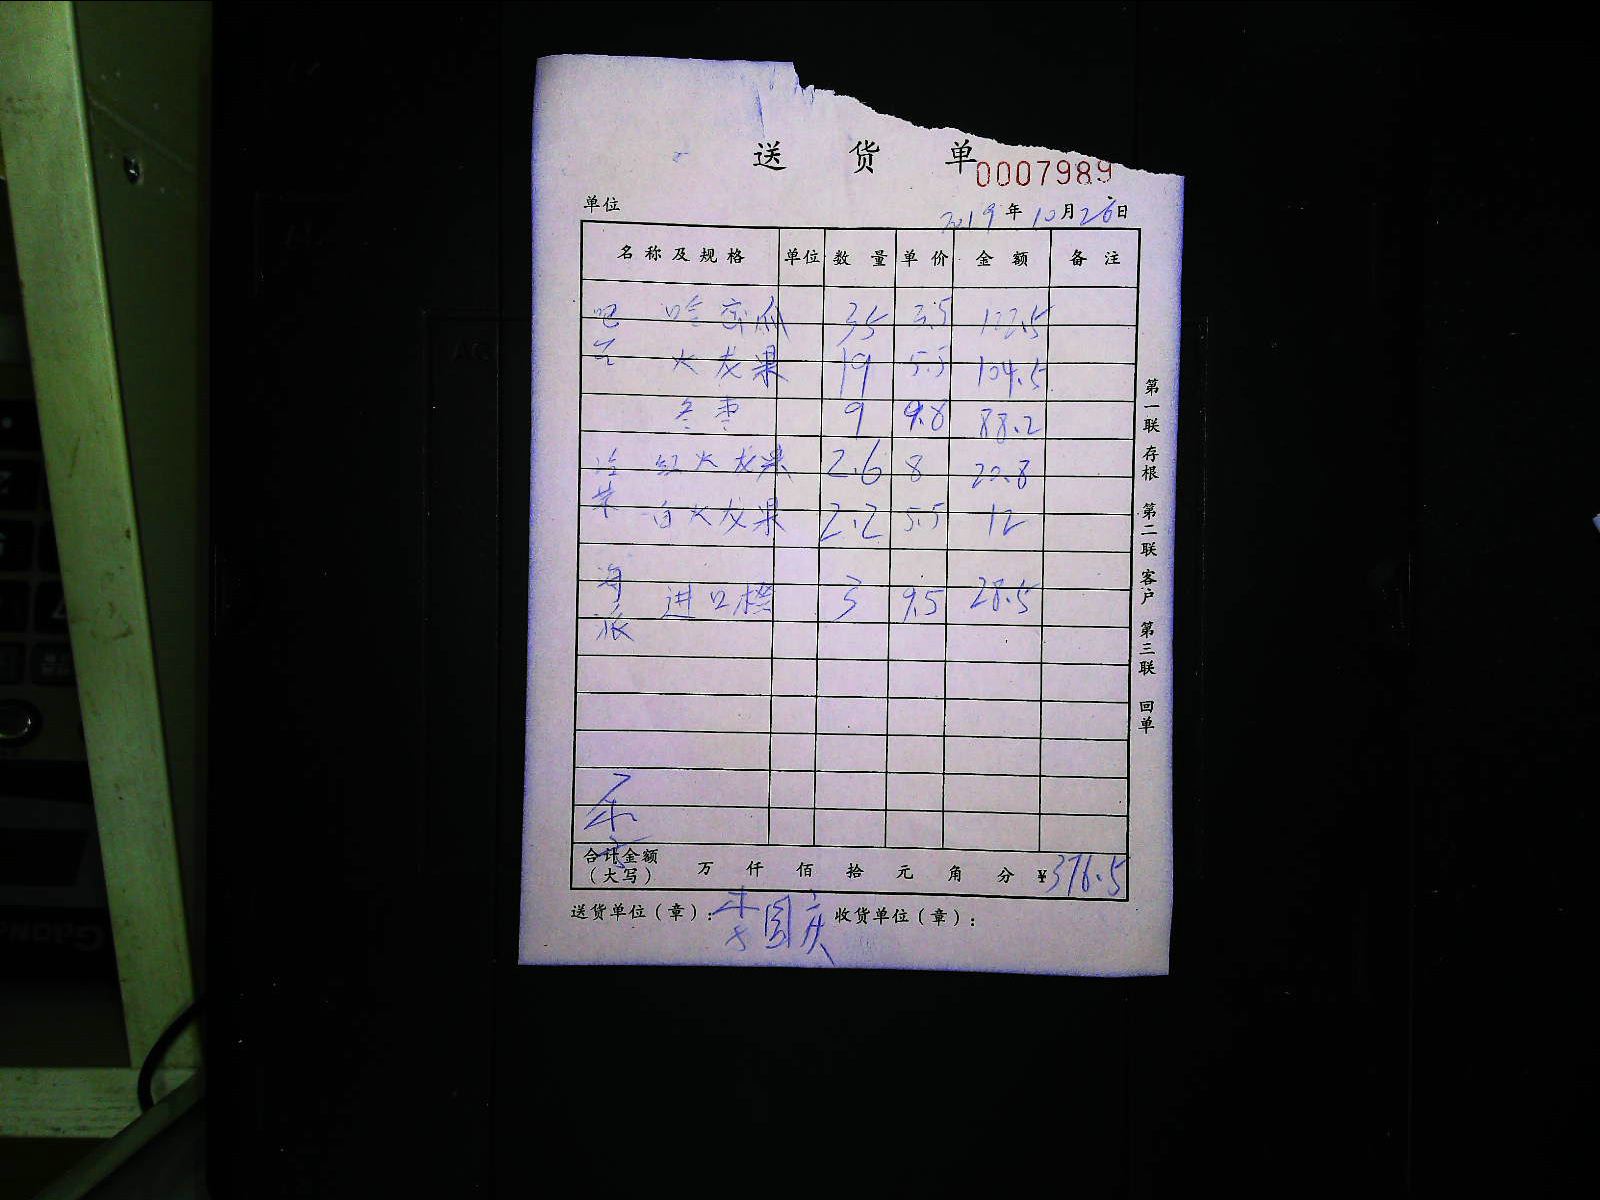 送货单 0007989
单位 2019年10月26日
名称及规格 单位 数量 单价 金额 备注
吧 哈密瓜 35 3.5 122.5
火龙果 19 5.5 104.5
冬枣 9 9.8 88.2
冷 红火龙果 2.6 8 20.8
菜 白火龙果 2.2 5.5 12
海 进口橙 3 9.5 28.5
派
合计金额
（大写） 万 仟 佰 拾 元 角 分 ¥376.5
送货单位（章）：李国庆 收货单位（章）：
第一联 存根 第二联 客户 第三联 回单